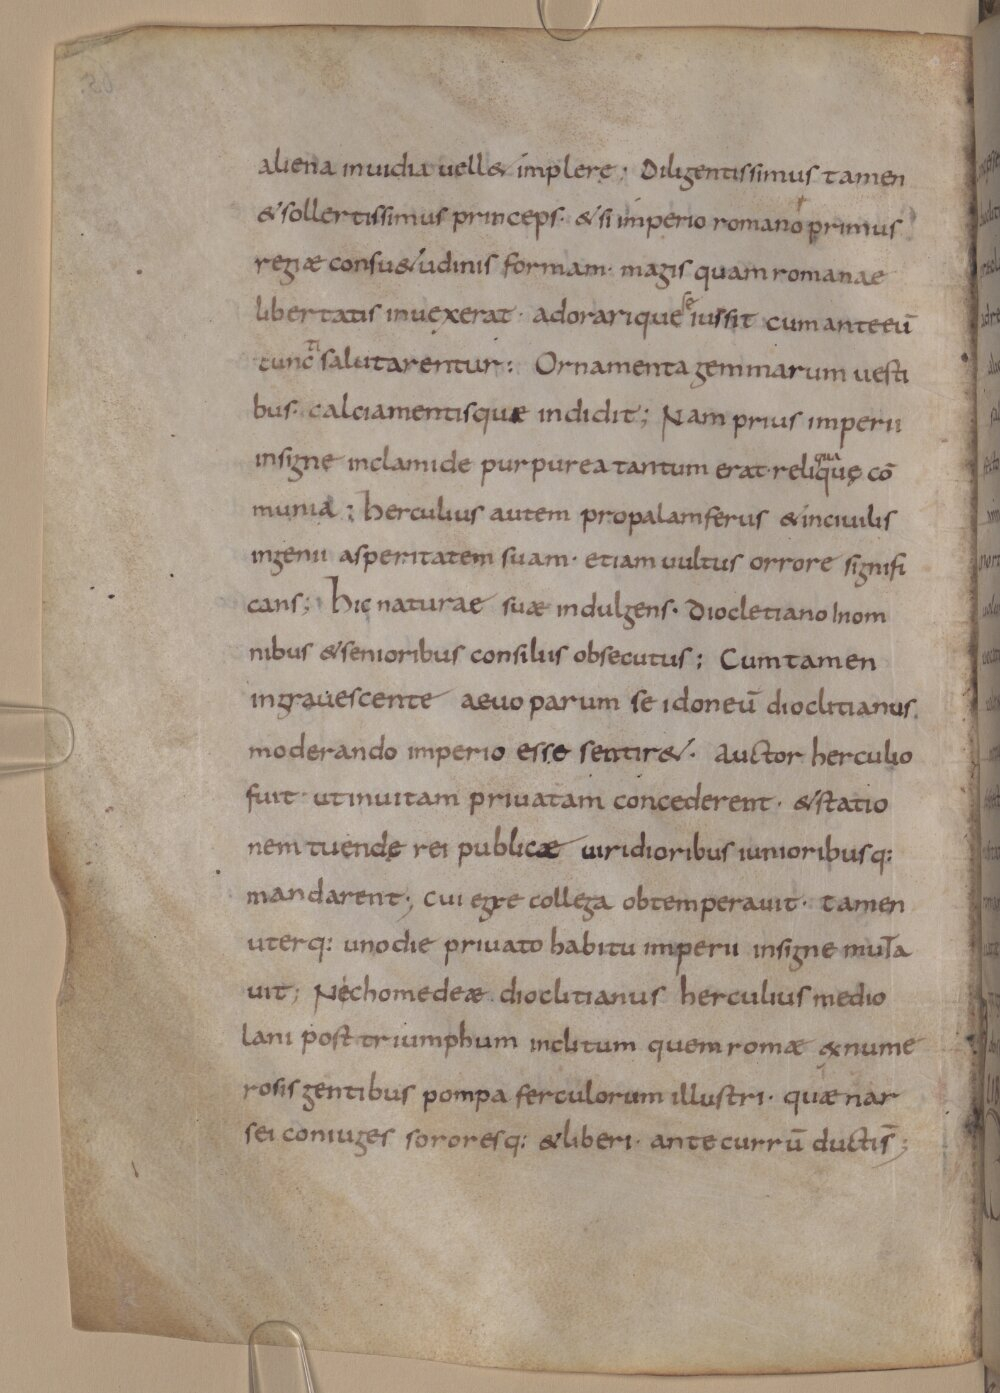 aliena inuidia uell& implere; Diligentissimus tamen
& sollertissimus princeps· & si imperio romano primus
regiæ consu&udinis formam· magis quam romanae
libertatis inuexerat· adorarique se iussit cum ante eū
cuncti salutarentur; Ornamenta gemmarum uesti
bus· calciamentisque indidit; Nam prius imperii
insigne inclamide purpurea tantum erat· reliquaque cō
munia; herculius autem propalam ferus & inciuilis
ingenii asperitatem suam· etiam uultus orrore signifi
cans; hic naturae suæ indulgens· Diocletiano Inom
nibus & senioribus consiliis obsecutus; Cum tamen
ingrauescente aeuo parum se idoneū dioclitianus
moderando imperio esse sentir&· auctor herculio
fuit· utinuitam priuatam concederent· & statio
nem tuendę rei publicæ uiridioribus iunioribusq:
mandarent; cui egre collega obtemperauit· tamen
uterq: uno die priuato habitu imperii insigne muta
uit; Nechomedeæ dioclitianus herculius medio
lani post triumphum inclitum quem romæ ex nume
rosis gentibus pompa ferculorum illustri· quæ nar
sei coniuges sororesq: & liberi· ante currū ductis̄;